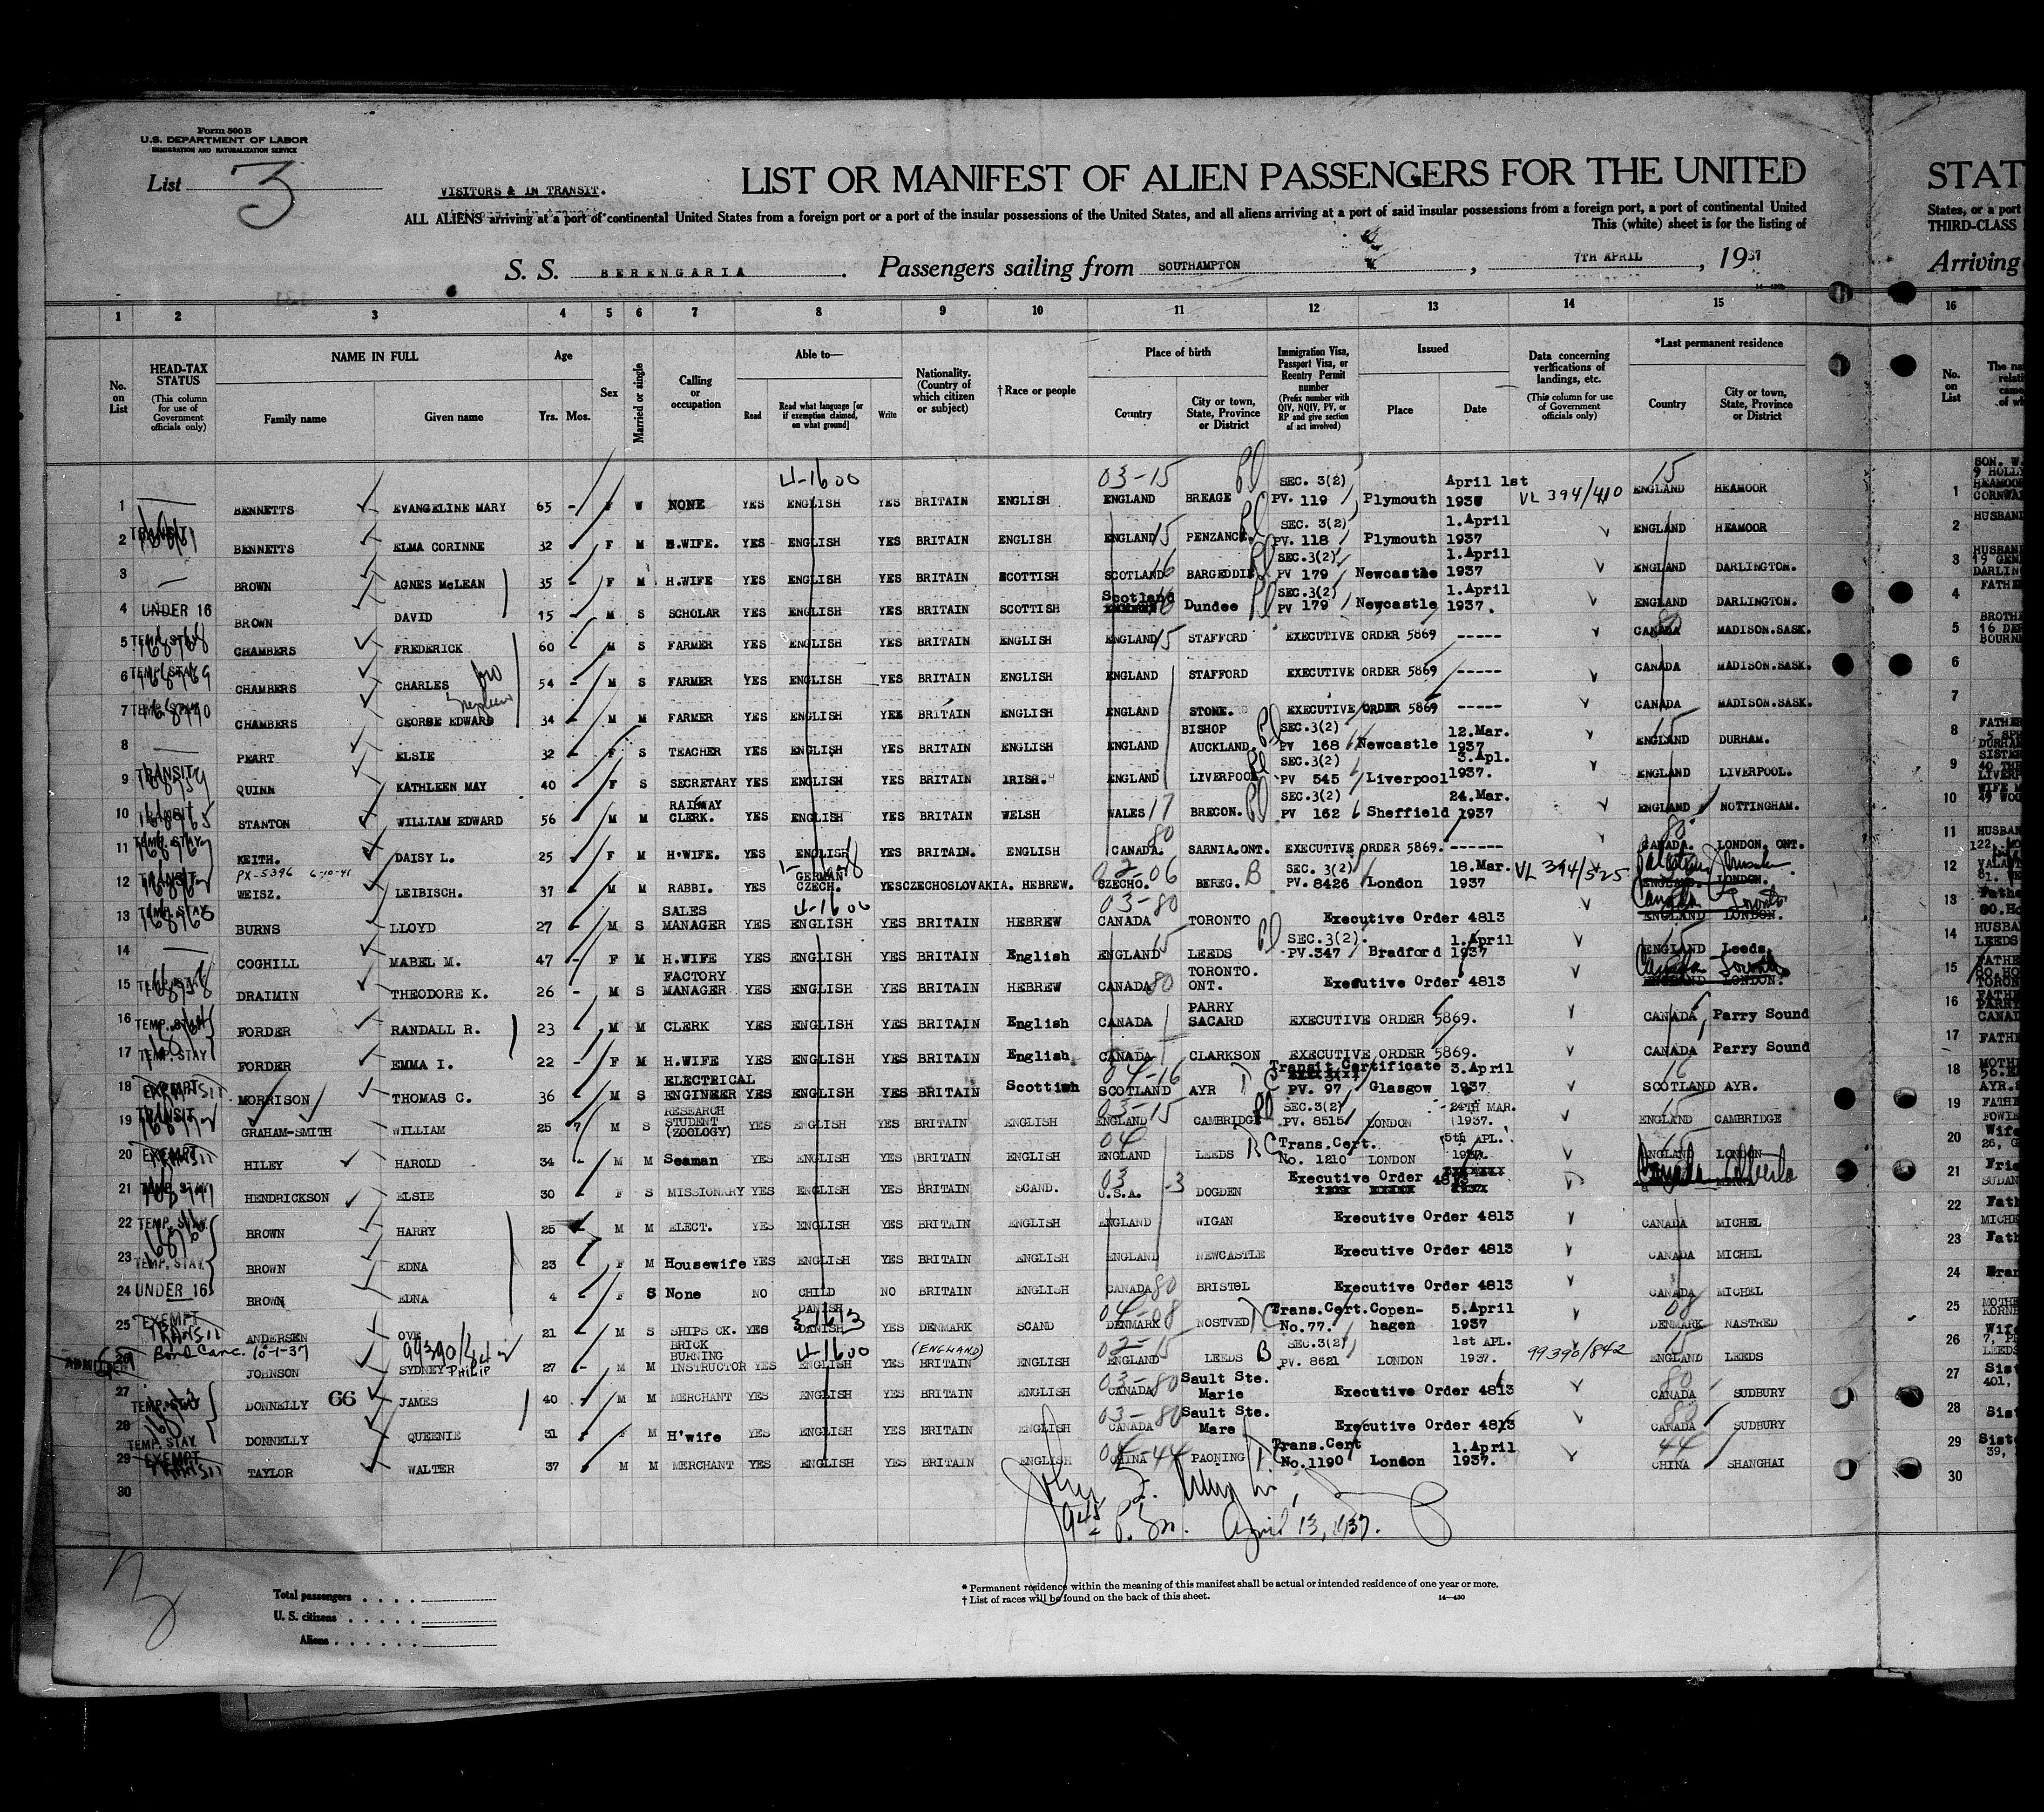 Form 500 B
U.S. DEPARTMENT OF LABOR
IMMIGRATION AND NATURALIZATION SERVICE
List 3
VISITORS & IN TRANSIT.
LIST OR MANIFEST OF ALIEN PASSENGERS FOR THE UNITED
STAT
ALL ALIENS arriving at a port of continental United States from a foreign port or a port of the insular possessions of the United States, and all aliens arriving at a port of said insular possessions from a foreign port, a port of continental United
States, or a port
This (white) sheet is for the listing of
THIRD-CLASS
S. S. BERENGARIA. Passengers sailing from SOUTHAMPTON, 7TH APRIL, 1937
Arriving
1 2 3 4 5 6 7 8 9 10 11 12 13 14 15 16
No. on List
HEAD-TAX STATUS (This column for use of Government officials only)
NAME IN FULL Family name Given name
Age Yrs. Mos.
Sex
Married or single
Calling or occupation
Able to— Read Read what language [or if exemption claimed, on what ground] Write
Nationality. (Country of which citizen or subject)
† Race or people
Place of birth Country City or town, State, Province or District
Immigration Visa, Passport Visa, or Reentry Permit number (Prefix number with QIV, NQIV, PV, or RP and give section of act involved)
Issued Place Date
Data concerning verifications of landings, etc. (This column for use of Government officials only)
*Last permanent residence Country City or town, State, Province or District
No. on List
1 BENNETTS EVANGELINE MARY 65 - F W NONE YES ENGLISH YES BRITAIN ENGLISH ENGLAND BREAGE SEC. 3(2) PV. 119 Plymouth April 1st 1937 VL 394/410 ENGLAND HEAMOOR 1
2 TRANSIT BENNETTS ELMA CORINNE 32 F M H.WIFE. YES ENGLISH YES BRITAIN ENGLISH ENGLAND 15 PENZANCE. SEC. 3(2) PV. 118 Plymouth 1.April 1937 ENGLAND HEAMOOR 2 HUSBAND
3 BROWN AGNES McLEAN 35 - F M H.WIFE YES ENGLISH YES BRITAIN SCOTTISH SCOTLAND 16 BARGEDDIE SEC.3(2) PV 179 Newcastle 1.April 1937 ENGLAND DARLINGTON. 3
4 UNDER 16 BROWN DAVID 15 - M S SCHOLAR YES ENGLISH YES BRITAIN SCOTTISH Scotland Dundee SEC.3(2) PV 179 Newcastle 1.April 1937. ENGLAND DARLINGTON. 4
5 TEMP. STAY CHAMBERS FREDERICK 60 M S FARMER YES ENGLISH YES BRITAIN ENGLISH ENGLAND 15 STAFFORD EXECUTIVE ORDER 5869 ----- CANADA MADISON.SASK. 5
6 TEMP. STAY CHAMBERS CHARLES bro 54 - M S FARMER YES ENGLISH YES BRITAIN ENGLISH ENGLAND STAFFORD EXECUTIVE ORDER 5869 ----- CANADA MADISON.SASK. 6
7 TEMP. STAY CHAMBERS GEORGE EDWARD nephew 34 M M FARMER YES ENGLISH YES BRITAIN ENGLISH ENGLAND STONE. EXECUTIVE ORDER 5869 ----- CANADA MADISON.SASK. 7
8 PEART ELSIE 32 - F S TEACHER YES ENGLISH YES BRITAIN ENGLISH ENGLAND BISHOP AUCKLAND. SEC.3(2) PV 168 Newcastle 12.Mar. 1937 ENGLAND DURHAM. 8
9 TRANSIT QUINN KATHLEEN MAY 40 - F S SECRETARY YES ENGLISH YES BRITAIN IRISH. ENGLAND LIVERPOOL SEC.3(2) PV 545 Liverpool 3.Apl. 1937. ENGLAND LIVERPOOL. 9
10 TRANSIT STANTON WILLIAM EDWARD 56 M M RAILWAY CLERK. YES ENGLISH YES BRITAIN WELSH WALES 17 BRECON. SEC.3(2) PV 162 Sheffield 24.Mar. 1937 ENGLAND NOTTINGHAM. 10
11 TEMP. STAY KEITH. DAISY L. 25 F M H.WIFE. YES ENGLISH YES BRITAIN. ENGLISH CANADA. 80 SARNIA.ONT. EXECUTIVE ORDER 5869. ------ CANADA. LONDON. ONT. 11
12 TRANSIT PX-5396 6-10-41 WEISZ. LEIBISCH. 37 M M RABBI. YES GERMAN CZECH. YES CZECHOSLOVAKIA. HEBREW. SZECHO. 02-06 BEREG. B SEC. 3(2) PV. 8426 London 18.Mar. 1937 VL 394/525 ENGLAND. LONDON. 12
13 TEMP. STAY BURNS LLOYD 27 M S SALES MANAGER YES ENGLISH YES BRITAIN HEBREW 03-80 CANADA TORONTO Executive Order 4813 Canada Toronto ENGLAND LONDON. 13
14 COGHILL MABEL M. 47 - F M H.WIFE YES ENGLISH YES BRITAIN English ENGLAND 15 LEEDS SEC.3(2). PV.347 Bradford 1.April 1937 ENGLAND Leeds 14
15 DRAIMIN THEODORE K. 26 - M S FACTORY MANAGER YES ENGLISH YES BRITAIN HEBREW CANADA 80 TORONTO. ONT. Executive Order 4813 Canada Toronto ENGLAND LONDON. 15
16 TEMP. STAY FORDER RANDALL R. 23 M M CLERK YES ENGLISH YES BRITAIN English CANADA PARRY SACARD EXECUTIVE ORDER 5869. CANADA, Parry Sound 16
17 TEMP. STAY FORDER EMMA I. 22 - F M H.WIFE YES ENGLISH YES BRITAIN English CANADA CLARKSON EXECUTIVE ORDER 5869. CANADA Parry Sound 17
18 EXEMPT TRANSIT MORRISON THOMAS C. 36 M S ELECTRICAL ENGINEER YES ENGLISH YES BRITAIN Scottish 04-16 SCOTLAND AYR TC Transit Certificate PV. 97 Glasgow 3.April 1937 16 SCOTLAND AYR. 18
19 TRANSIT GRAHAM-SMITH WILLIAM 25 7 M S RESEARCH STUDENT (ZOOLOGY) YES ENGLISH YES BRITAIN ENGLISH 03-15 ENGLAND CAMBRIDGE SEC.3(2) PV. 8515 LONDON 24TH MAR. 1937. ENGLAND CAMBRIDGE 19
20 EXEMPT TRANSIT HILEY HAROLD 34 M M Seaman YES ENGLISH YES BRITAIN ENGLISH 04 ENGLAND LEEDS Trans.Cert. No. 1210 LONDON 5th APL. 1937. ENGLAND LONDON 20
21 TEMP. STAY HENDRICKSON ELSIE 30 F S MISSIONARY YES ENGLISH YES BRITAIN SCAND. 03 U.S.A. -3 DOGDEN Executive Order 4813 Canada Alberta 21
22 TEMP. STAY BROWN HARRY 25 M M ELECT. YES ENGLISH YES BRITAIN ENGLISH ENGLAND WIGAN Executive Order 4813 CANADA MICHEL 22
23 TEMP. STAY BROWN EDNA 23 F M Housewife YES ENGLISH YES BRITAIN ENGLISH ENGLAND NEWCASTLE Executive Order 4813 CANADA MICHEL 23
24 UNDER 16 BROWN EDNA 4 F S None NO CHILD NO BRITAIN ENGLISH CANADA 80 BRISTOL Executive Order 4813 CANADA MICHEL 24
25 EXEMPT TRANSIT ANDERSEN OVE 21 M S SHIPS CK. YES DANISH DANISH YES DENMARK SCAND 04-08 DENMARK NOSTVED TC Trans.Cert. No.77. Copenhagen 5.April 1937 08 DENMARK NASTRED 25
26 ADMITTED Bond Canc. 10-1-37 JOHNSON SYDNEY PHILIP 27 - M M BRICK BURNING INSTRUCTOR YES 4-1600 ENGLISH YES (ENGLAND) BRITAIN ENGLISH 02-15 ENGLAND LEEDS B SEC.3(2) PV. 8621 LONDON 1st APL. 1937. 99390/842 ENGLAND LEEDS 26
27 TEMP. STAY DONNELLY 66 JAMES 40 M M MERCHANT YES ENGLISH YES BRITAIN ENGLISH 03-80 CANADA Sault Ste. Marie Executive Order 4813 80 CANADA SUDBURY 27
28 TEMP. STAY DONNELLY QUEENIE 31 F M H'wife YES ENGLISH YES BRITAIN ENGLISH 03-80 CANADA Sault Ste. Mare Executive Order 4813 CANADA SUDBURY 28
29 EXEMPT TRANSIT TAYLOR WALTER 37 M M MERCHANT YES ENGLISH YES BRITAIN ENGLISH 04-44 CHINA PAONING TC Trans.Cert No.1190 London 1.April 1937. 44 CHINA SHANGHAI 29
30 30
945 P.m. April 13, 1937.
Total passengers
U. S. citizens
Aliens
* Permanent residence within the meaning of this manifest shall be actual or intended residence of one year or more.
† List of races will be found on the back of this sheet.
14—430